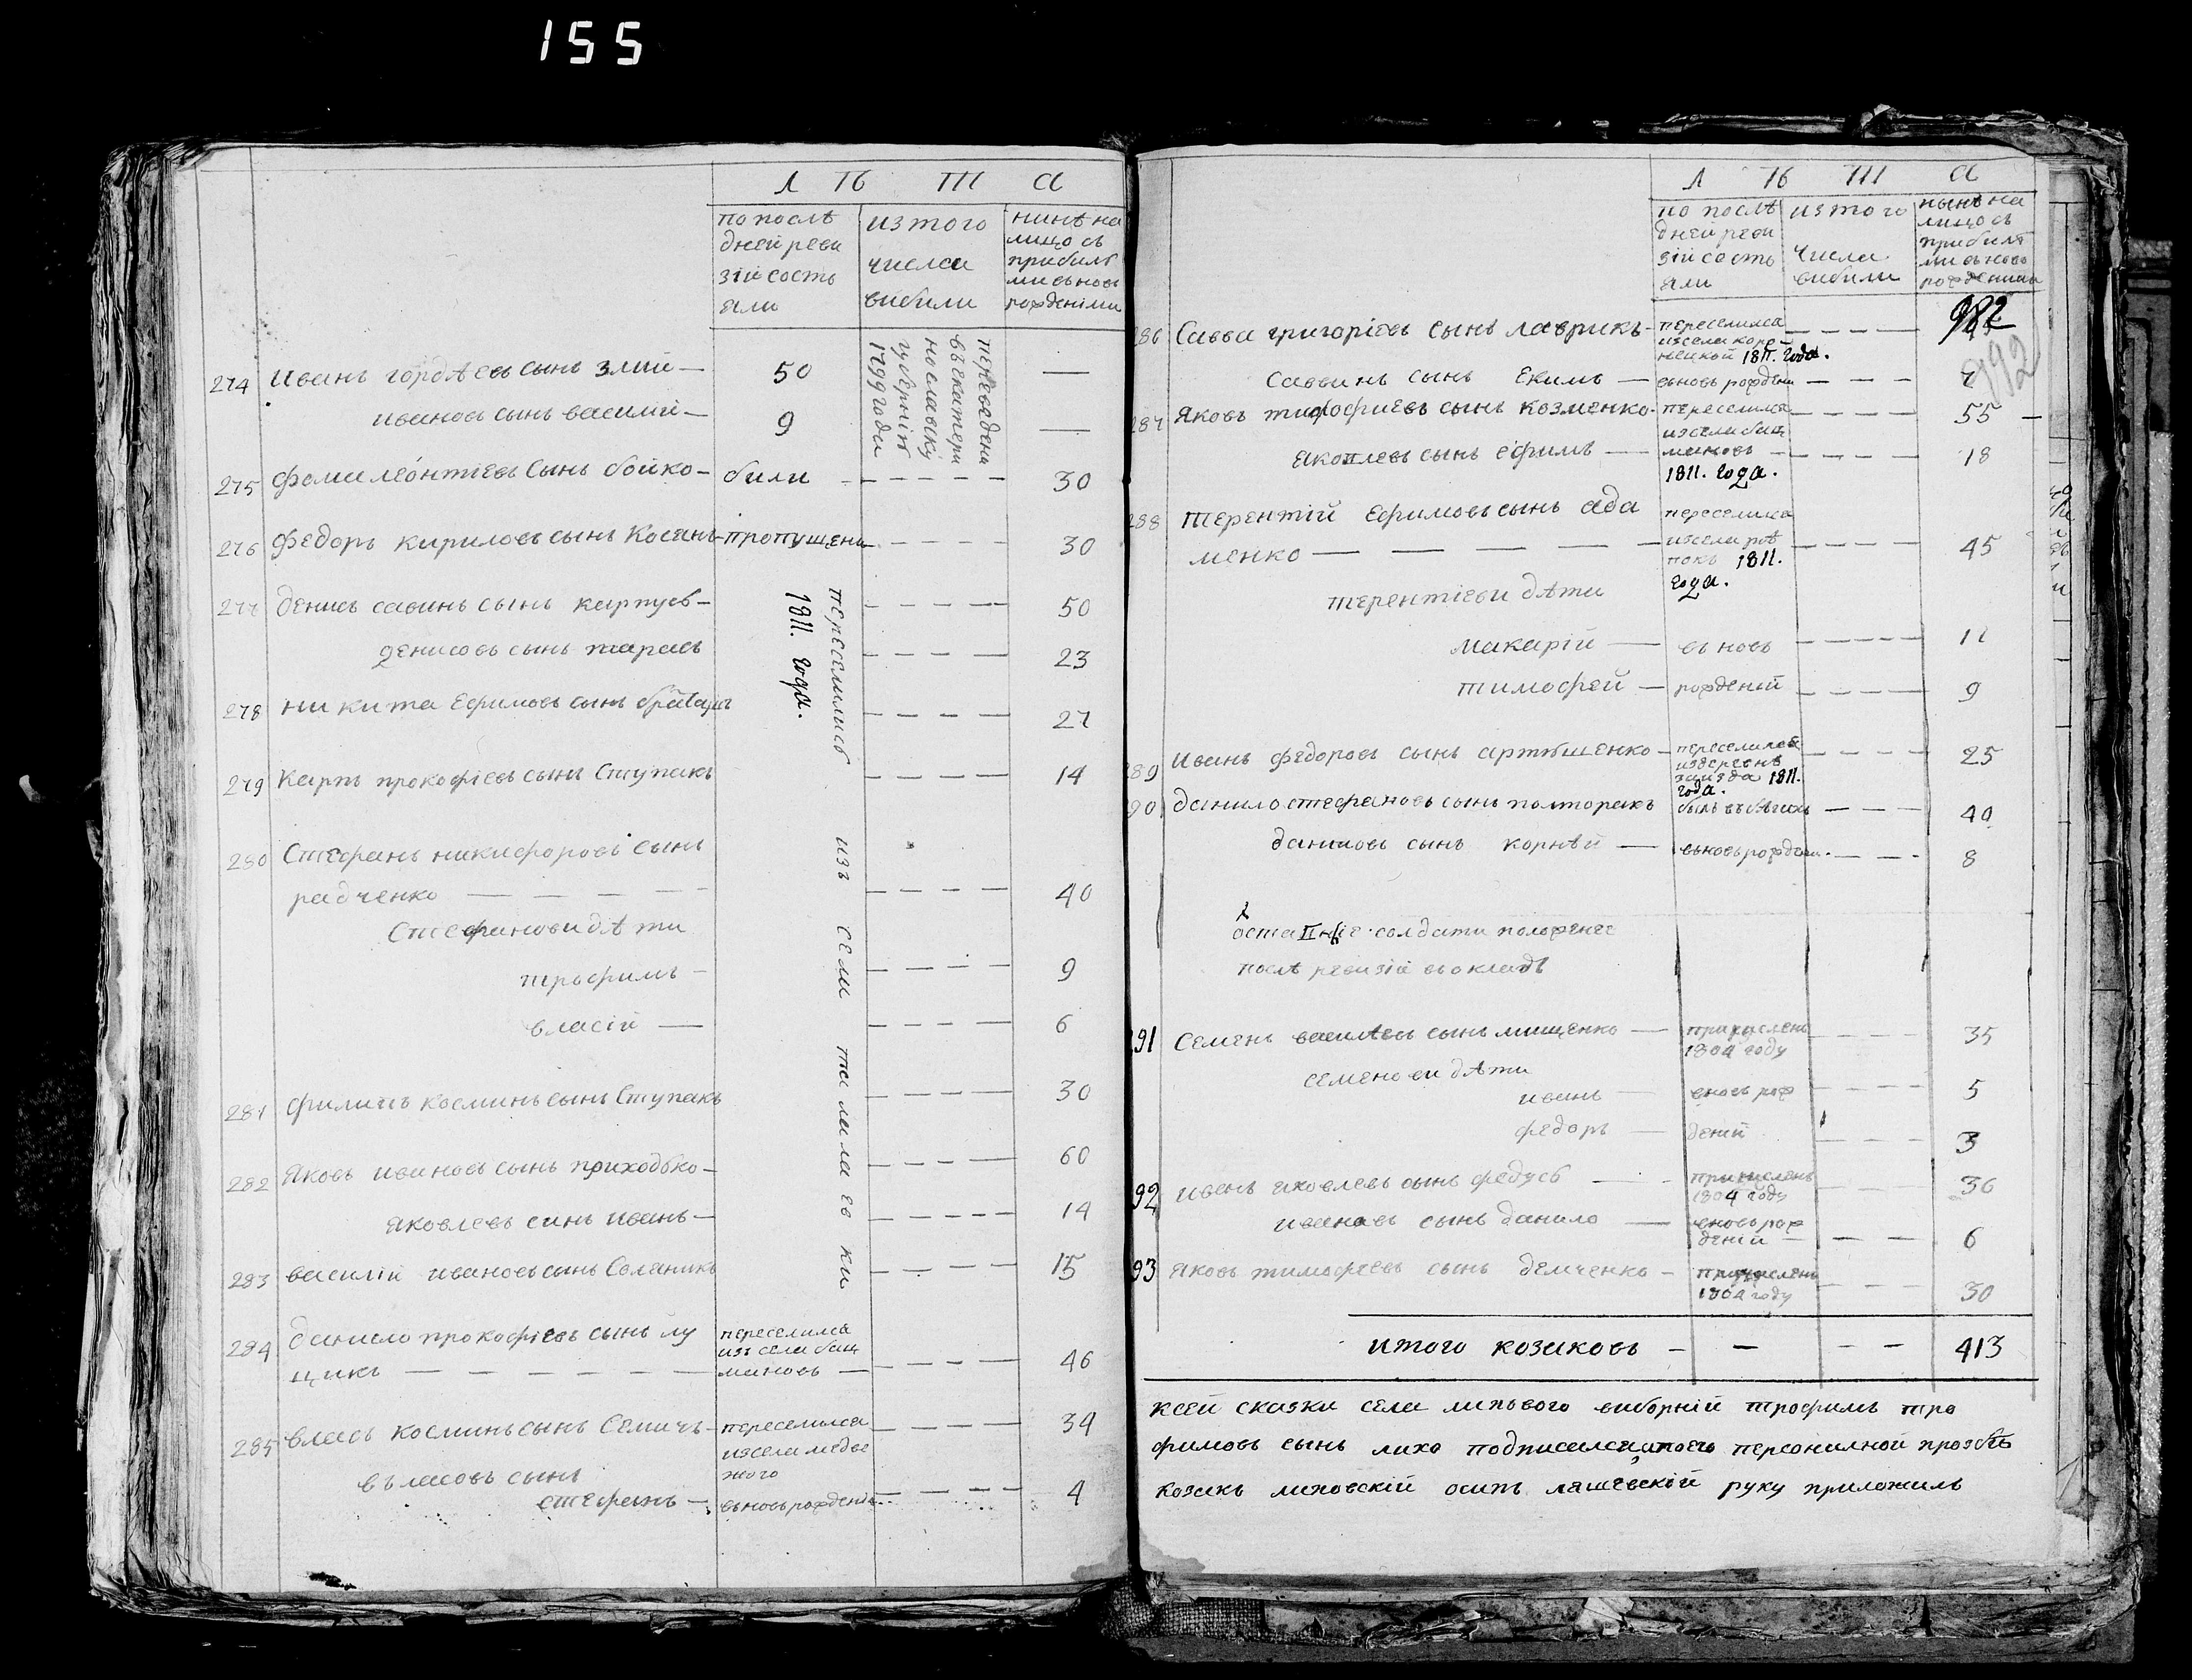 155
Л Ѣ Т А
по послѣ
дней реви
зіи сость
яли
изтого
числа
вибили
нинѣ на
лицо съ
прибилѣ
ми вьновь
рожденіми
274 Иванъ гордѣевъ сынъ Змій — 50 —
ивановъ сынъ василій — 9 —
переведени
въ екатери
нославску
губернію
1799 года
275 фома леонтіевъ сынъ бойко — били 30
276 федоръ кириловъ сынъ Косѣнъ — пропущени 30
277 денисъ савинъ сынъ карпусь — 50
денисовъ сынъ тарасъ 23
278 никита Ефимовъ сынъ 27
279 Карпъ прокофіевъ сынъ Ступакъ 14
280 Стефанъ никифоровъ сынъ
радченко — — — — 40
Стефанови дѣти
трофимъ — 9
власій — 6
281 филипъ косминъ сынъ Ступакъ 30
282 Яковъ ивановъ сынъ приходько — 60
яковлевъ синъ иванъ — 14
283 василій ивановъ сынъ Соляникъ 15
переселились изъ села милаевки
1811. года.
284 данило прокофіевъ сынъ лу
щикъ — — — — — 46
переселился
изъ села баш
мановъ —
285 власъ косминъ сынъ Семичъ — переселился 34
изсела медве
жого
въласовъ сынъ
стефанъ — вьновь рожденъ 4
Л Ѣ Т А
по послѣ
дней реви
зіи сость
яли
изтого
числа
вибили
нынѣ на
лицо съ
прибилѣ
ми вьновь
рожденими
982
992
286 Савва григоріевъ сынъ лаврикъ — переселился
изсела коро
1811. года.
Саввинъ сынъ Екимъ — вьновь рожденъ
287 Яковъ тифофиевъ сынъ козменко — переселился 55 —
изсела баш
мановъ
1811. года.
яковлевъ сынъ ефимъ — 18
288 терентій Ефимовъ сынъ ада
менко — — — — — 45
переселился
изсела роѣ
покъ 1811.
года.
терентіеви дѣти
макарій — вьновь 11
тимофей — рожденій 9
289 Иванъ федоровъ сынъ артюшенко — переселился 25
издеревнѣ
1811.
года.
290 данило стефановъ сынъ полторакъ былъ въ бѣгахъ 40
даниловъ сынъ корнѣй — вьновь рожденъ 8
остапніе солдати положение
послѣ ревизіи в окладъ
291 Семенъ василѣевъ сынъ мищенко — причисленъ 35
1804 году
семенови дѣти
иванъ — вновь рож 5
федоръ — деній 3
292 иванъ яковлевъ сынъ федусь — причисленъ 36
1804 году
ивановъ сынъ данило — вновь рож
деній — 6
293 Яковъ тимофеевъ сынъ демченко — причисленъ
1804 году 30
итого козаковъ — — — — 413
ксей сказки села липового виборній трофимъ тро
фимовъ сынъ лихо подписался, апоего персоналной прозбѣ
козакъ липовскій осипъ ляшевскій руку приложилъ